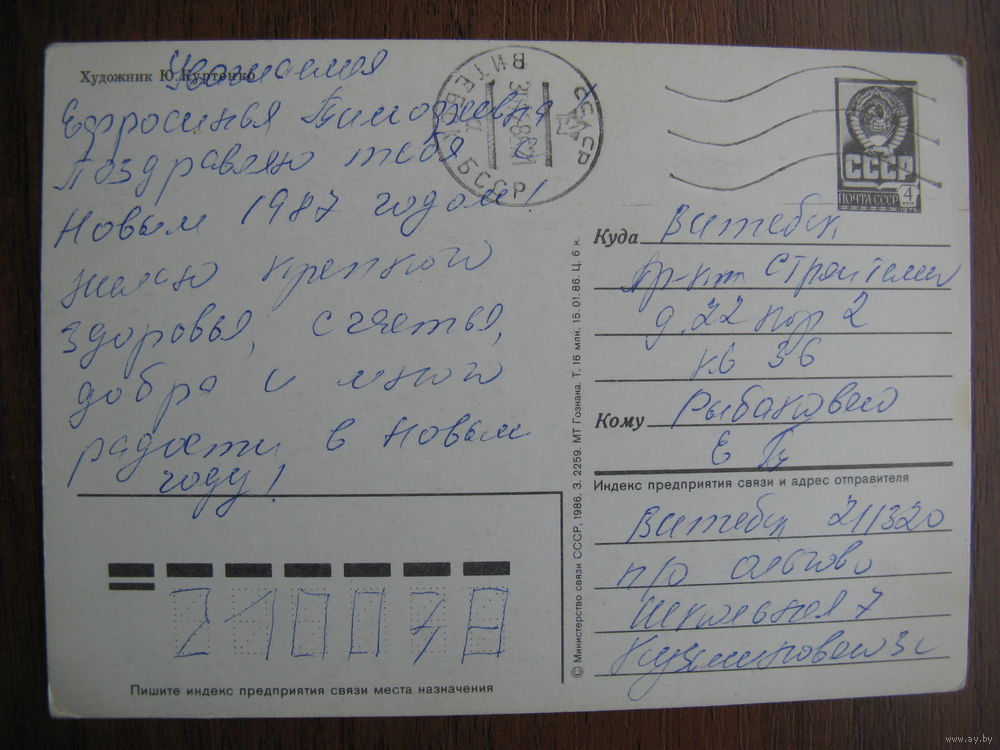 Художник Ю. Куртенко
Уважаемая
Ефросинья Тимофеевна
Поздравляю тебя с
Новым 1987 годом!
желаю крепкого
здоровья, счастья,
добра и много
радости в Новым
году!
ВИТЕБСК БССР
СССР
СССР
ПОЧТА СССР 4
1976
Куда Витебск
пр-кт Строители
д. 22 кор 2
кв 36
Кому Рыбаковой
Е
Индекс предприятия связи и адрес отправителя
Витебск 211320
п/о Ольгово
Школьная 7
210078
Пишите индекс предприятия связи места назначения
© Министерство связи СССР, 1986. З. 2259. МТ Гознака. Т. 16 млн. 15.01.86. Ц. 6 к.
www.ay.by